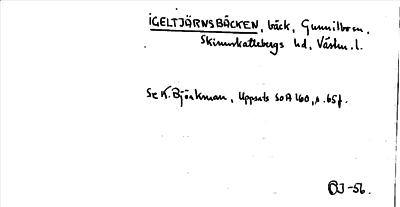 IGELTJÄRNSBÄCKEN, bäck, Gunnilbo sn.
Skinnskattebergs hd, Västm. l.
Se K. Björkman, Uppsats SOÄ 160, s. 65 f.
OJ -56.